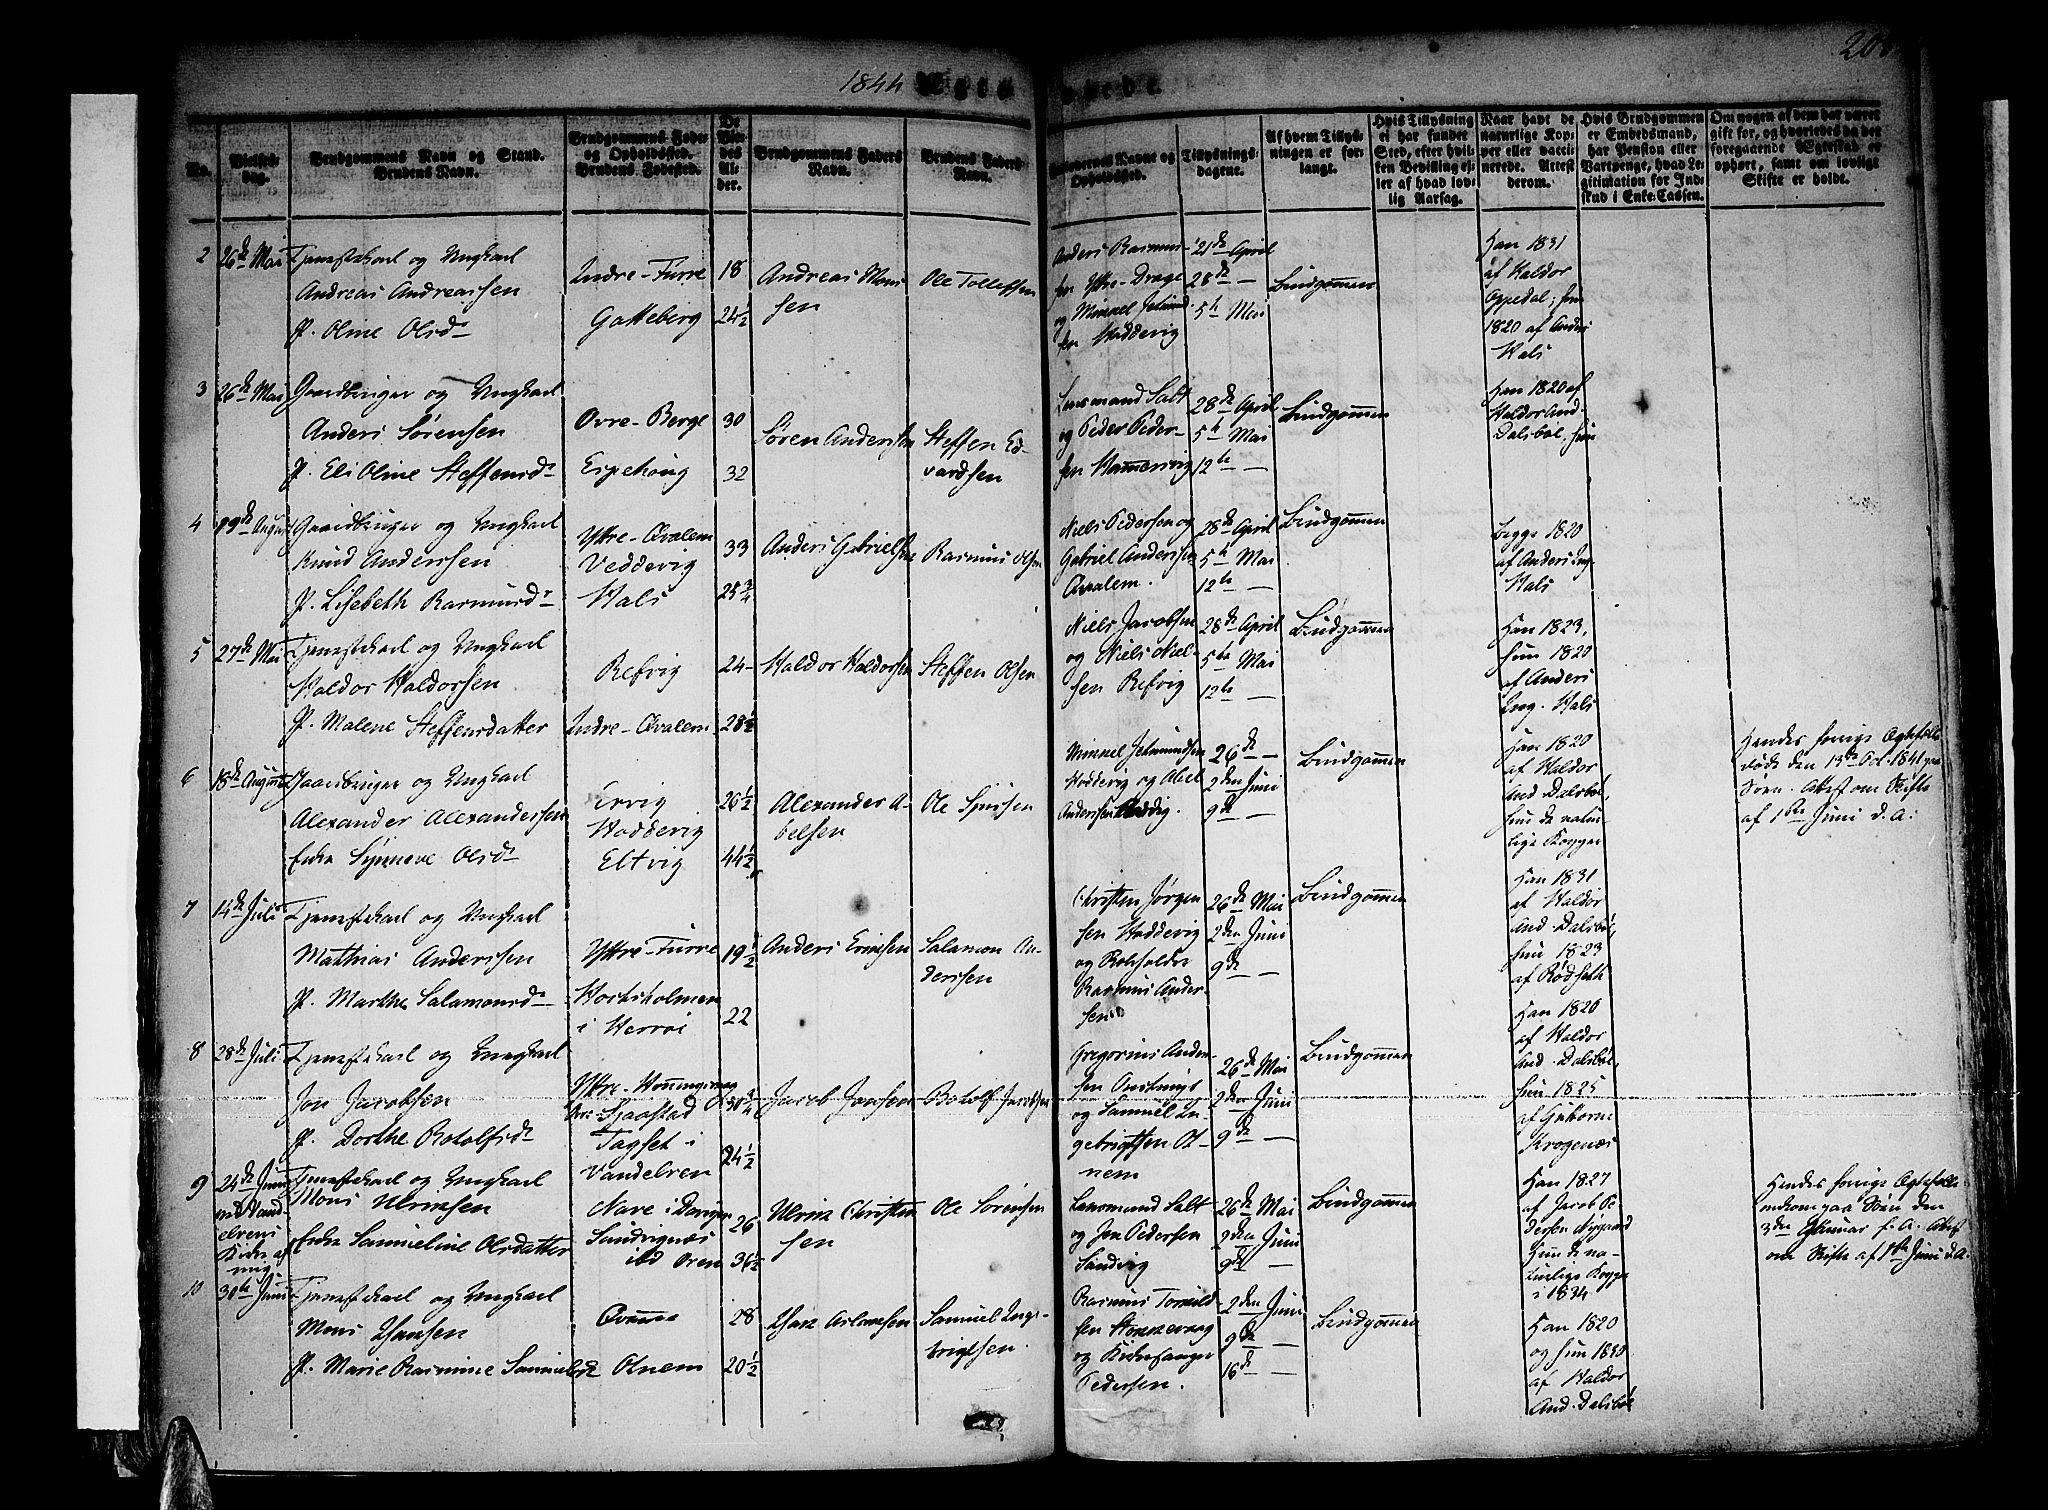 1844 Egteviede.
No.
Vielses-dag.
Brudgommens Navn og Stand.
Brudens Navn.
Brudgommens Føde-
og Opholdssted.
Brudens Fødested.
De Viedes Alder.
Brudgommens Faders
Navn.
Brudens Faders
Navn.
Forlovernes Navne og
Opholdssted.
Tillysnings-
dagene.
Af hvem Tillys-
ningen er for-
langt.
Hvis Tillysning
ei har fundet
Sted, efter hvil-
ken Bevilling el-
ler af hvad lov-
lig Aarsag.
Naar havt de
naturlige Kop-
per eller vacci-
nerede. Attest
derom.
Hvis Brudgommen
er Embedsmand,
har Pension eller
Vartpenge, hvad Le-
gitimation for Ind-
skud i Enke-Cassen.
Om nogen af dem har været
gift før, og hvorledes da det
foregaaende Ægteskab er
ophørt, samt om lovligt
Skifte er holdt.
2 26de Mai Tjenestekarl og Ungkarl
Andreas Andreassen
P. Oline Olsdr
Indre-Furre 18
Gotteberg 24½
Andreas Mons
sen
Ole Tollefsen
Anders Rasmus-
sen Yttre-Drage
og Mimmel Jetmund-
sen Hoddevig
21de April
28de —
5te Mai
Brudgommen
Han 1831
af Haldor
Oppedal; hun
1820 af Anders
Hals
3 26de Mai Gaardbruger og Ungkarl
Anders Sørensen
P. Eli Oline Steffensdr
Øvre-Berge 30
Espehoug 32
Søren Andersen
Steffen Ed-
vardsen
Lensmand Salt
og Peder Peder-
sen Hammersvig
28de April
5te Mai
12te —
Brudgommen
Han 1820 af
Haldor And.
Dalsbøe, hun
4 19de August Gaardbruger og Ungkarl
Knud Anderssen
P. Lisebeth Rasmusdr
Yttre-Qvalem
Veddevig 33
Hals 25¾
Anders Gabrielsen
Rasmus Olsen
Niels Pedersen og
Gabriel Anderssen
Qvalem.
28de April
5te Mai
12te —
Brudgommen
Begge 1820
af Anders Ing.
Hals
5 27de Mai Tjenestekarl og Ungkarl
Haldor Haldorsen
P. Malene Steffensdatter
Refvig 24
Indre-Qvalem 28½
Haldor Haldorsen
Steffen Olsen
Niels Jacobsen
og Niels Niel-
sen Refvig
28de April
5te Mai
12te —
Brudgommen
Han 1823,
hun 1820
af Anders
Ing. Hals
6 18de August Gaardbruger og Ungkarl
Alexander Alexandersen
Enke Synneve Olsdr
Ervig 26½
Hoddevig
Eltvig 44½
Alexander A-
belsen
Ole Sjursen
Mimmel Jetmundsen
Hoddevig og Abel
Anderssen
26de —
2den Juni
9de
Brudgommen
Han 1820
af Haldor
And Dalsbøe,
hun de natur-
lige Kopper
Hendes forrige Egtefælle
døde den 13de Oct. 1841
Søen. Attest om Skifte
af 1ste Juni d. A.
7 14de Juli Tjenestekarl og Ungkarl
Mathias Anderssen
P. Marthe Salamonsdr
Yttre-Furre 19½
Hortsholmen
i Herrøi 22
Anders Ericksen
Salamon An-
derssen
Christen Jørgen
sen Hoddevig
og Roholder
Rasmus Ander-
sen
26de Mai
2den Juni
9de —
Brudgommen
Han 1831
af Haldor
And Dalsbøe,
hun 1823
af Rødseth
8 28de Juli Tjenestekarl og Ungkarl
Jon Jacobsen
P. Dorthe Botolfsdr
Yttre-Honningsvaag
Sjaastad 30¾
Tagset i
Vandelven 24½
Jacob Jonsen
Botolf Jacobsen
Gregorius Ander-
sen
og Samuel In-
gebrigtsen Ot-
nem
26de Mai
2den Juni
9de —
Brudgommen
Han 1820
af Haldor
And. Dalsbøe,
hun 1825
af Guttorm
Krogenæs
9 24de Juni Tjenestekarl og Ungkarl
Mons Ulriksen
Enke Samueline Olsdatter
Nave i Davigen 26
Sandvignæs
ibd Oren 36½
Ulrik Christen
sen
Ole Sørensen
Lensmand Salt
og Jon Pedersen
Sandvig
26de Mai
2den Juni
9de —
Brudgommen
Han 1827
af Jacob Pe
dersen Nygaard
hun de na-
turlige Kopper
i 1834
Hendes forrige Egtefælle
omkom paa Søen den
3de Februar f. A. Attest
om Skifte af 1ste Juni d. A.
10 30te Juni Tjenestekarl og Ungkarl
Mons Hansen
P. Marie Rasmine Samuelsdr
28
Otnem 20½
Hans Aslaksen
Samuel Inge-
brigtsen.
Rasmus Tomild-
sen
og Kirkesanger
Pedersen.
2den Juni
9de —
16de —
Brudgommen
Han 1820
og hun 1830
af Haldor
And. Dalsbøe